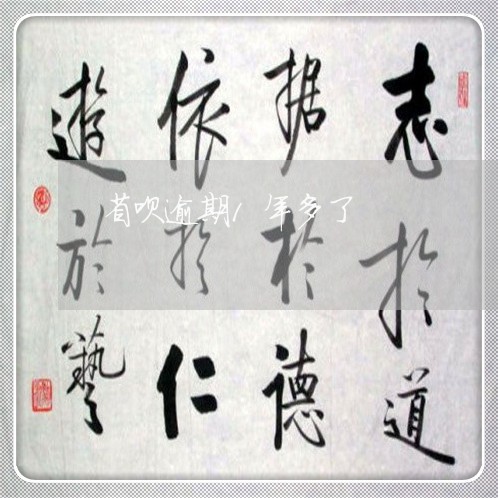 志於道
据於德
依於仁
遊於藝
省呗逾期1 年多了